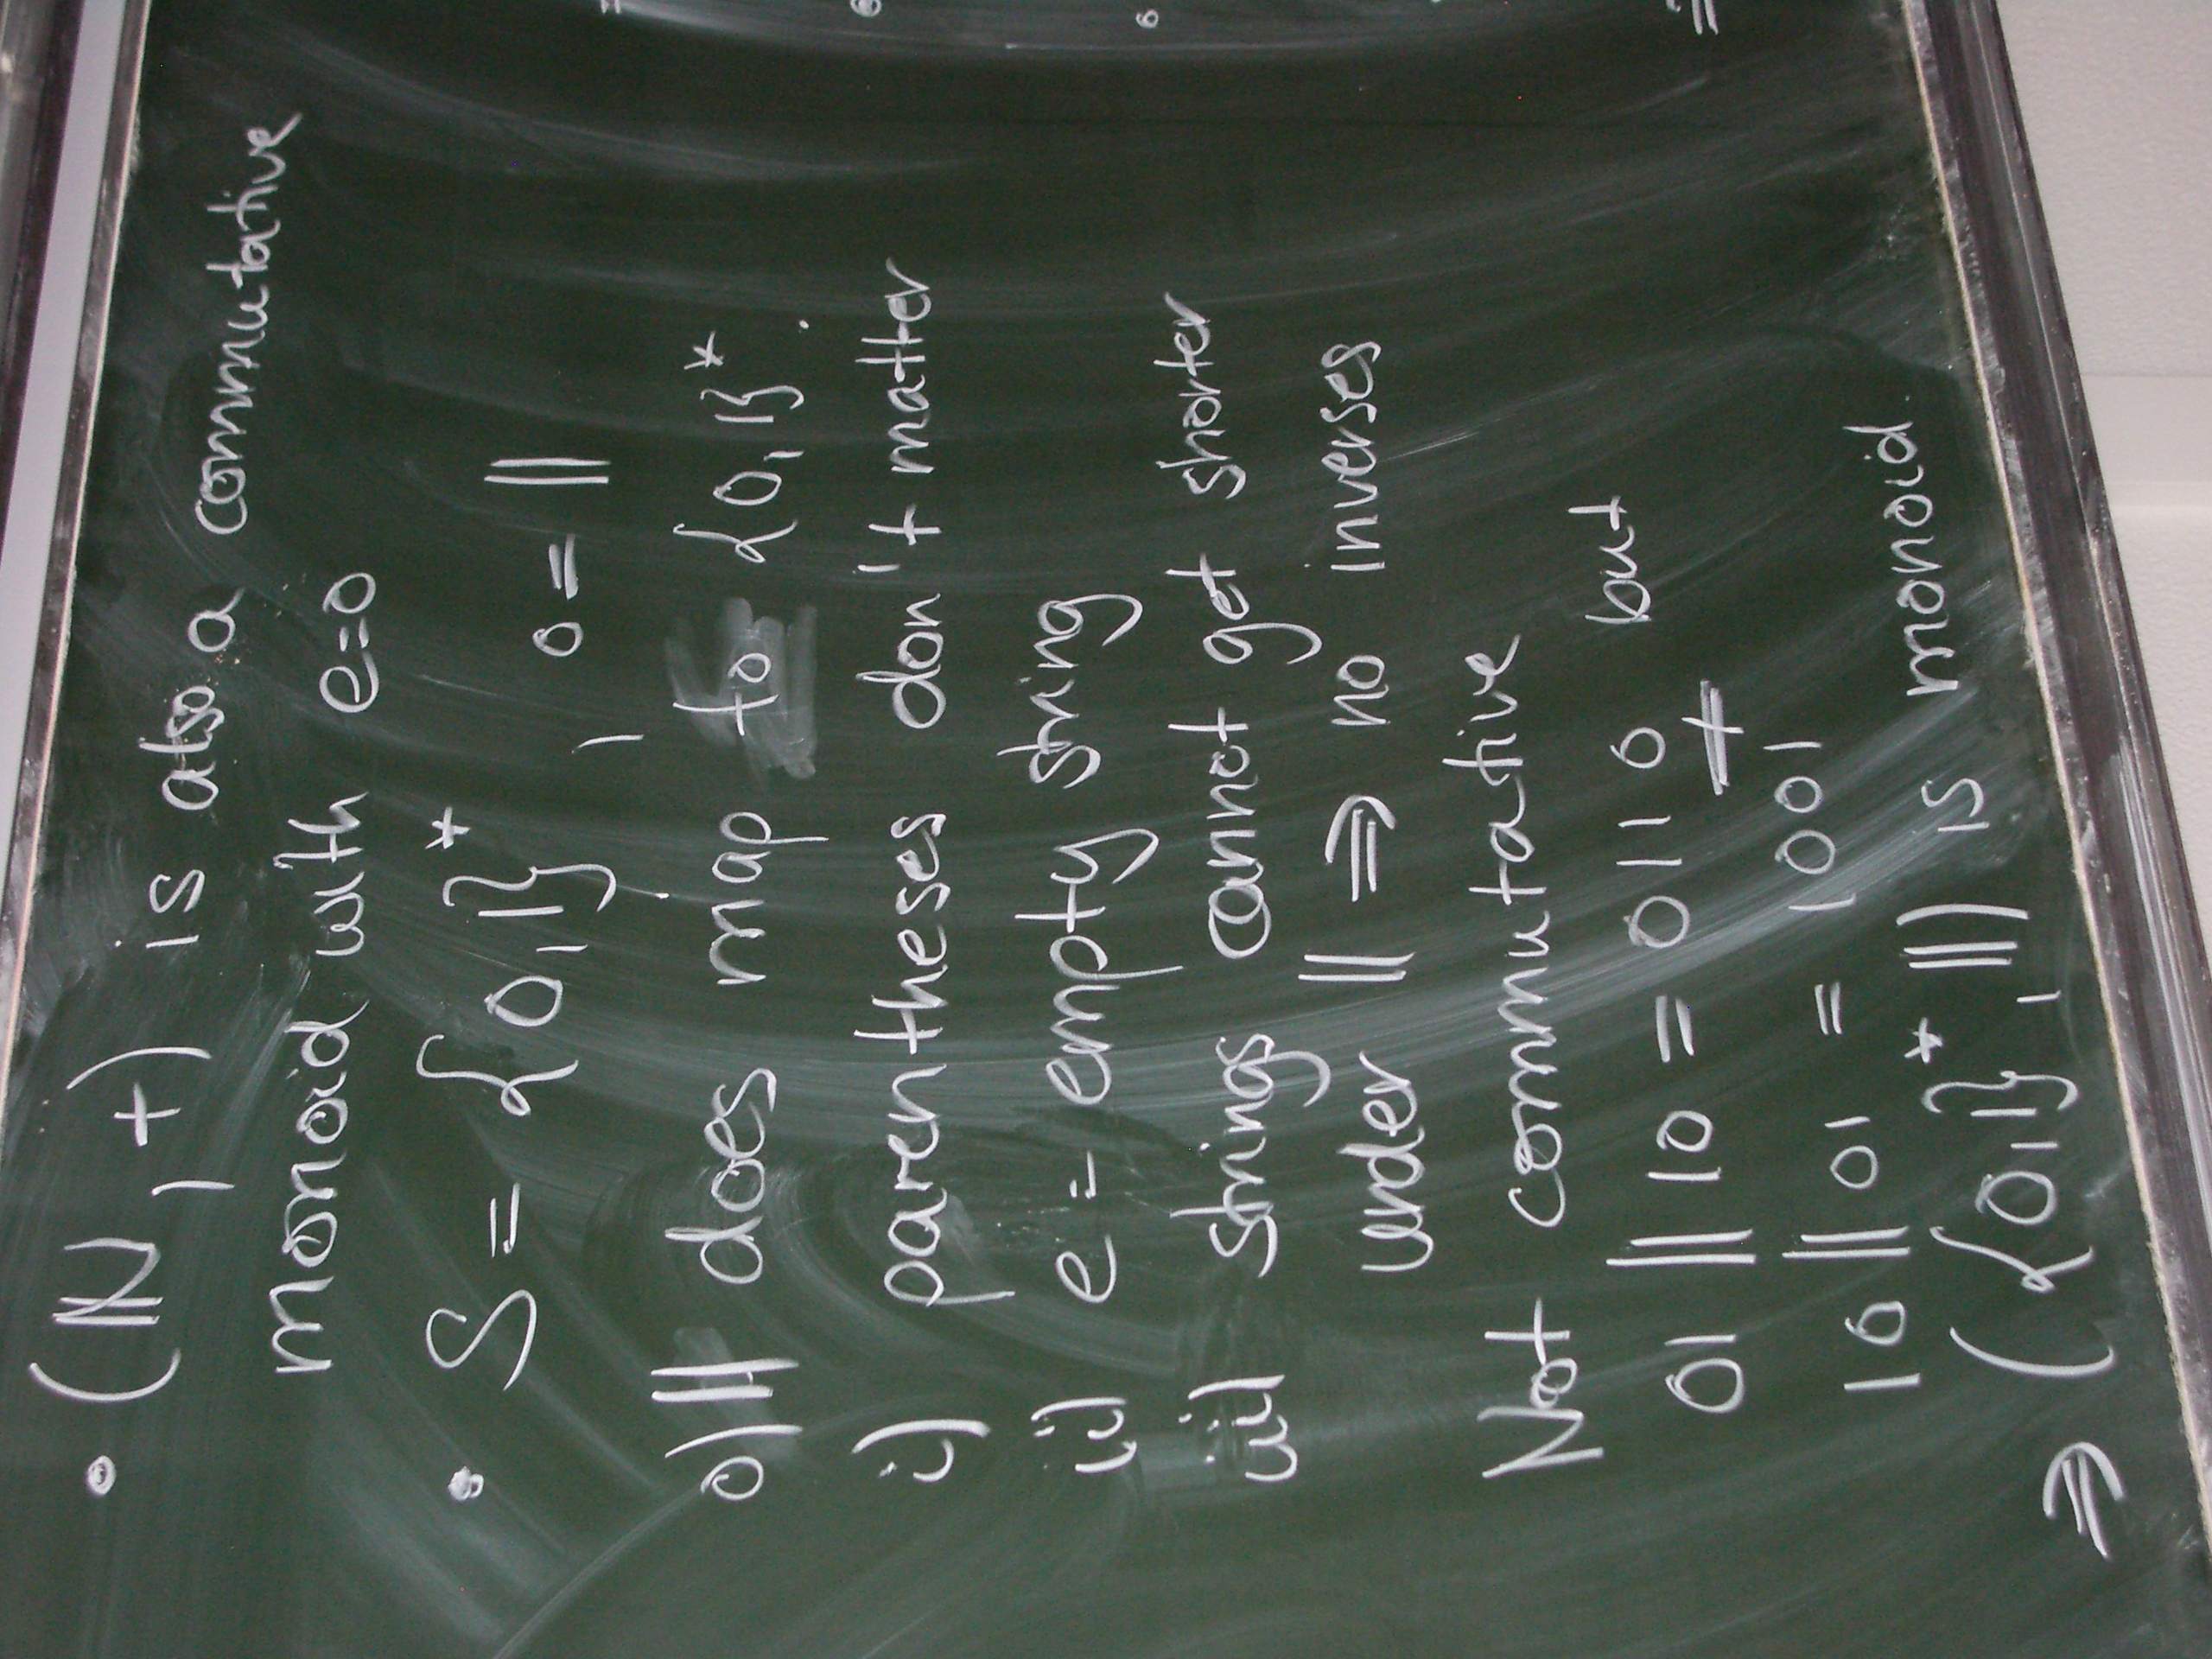 • (ℕ, +) is also a commutative
monoid with e=0
• S = {0,1}*, ∘ = ||
0) || does map to {0,1}*.
i) parentheses don't matter
ii) e = empty string
iii) strings cannot get shorter
under || ⇒ no inverses
Not commutative but
01 || 10 = 0110
≠
10 || 01 = 1001
⇒ ({0,1}*, ||) is monoid.